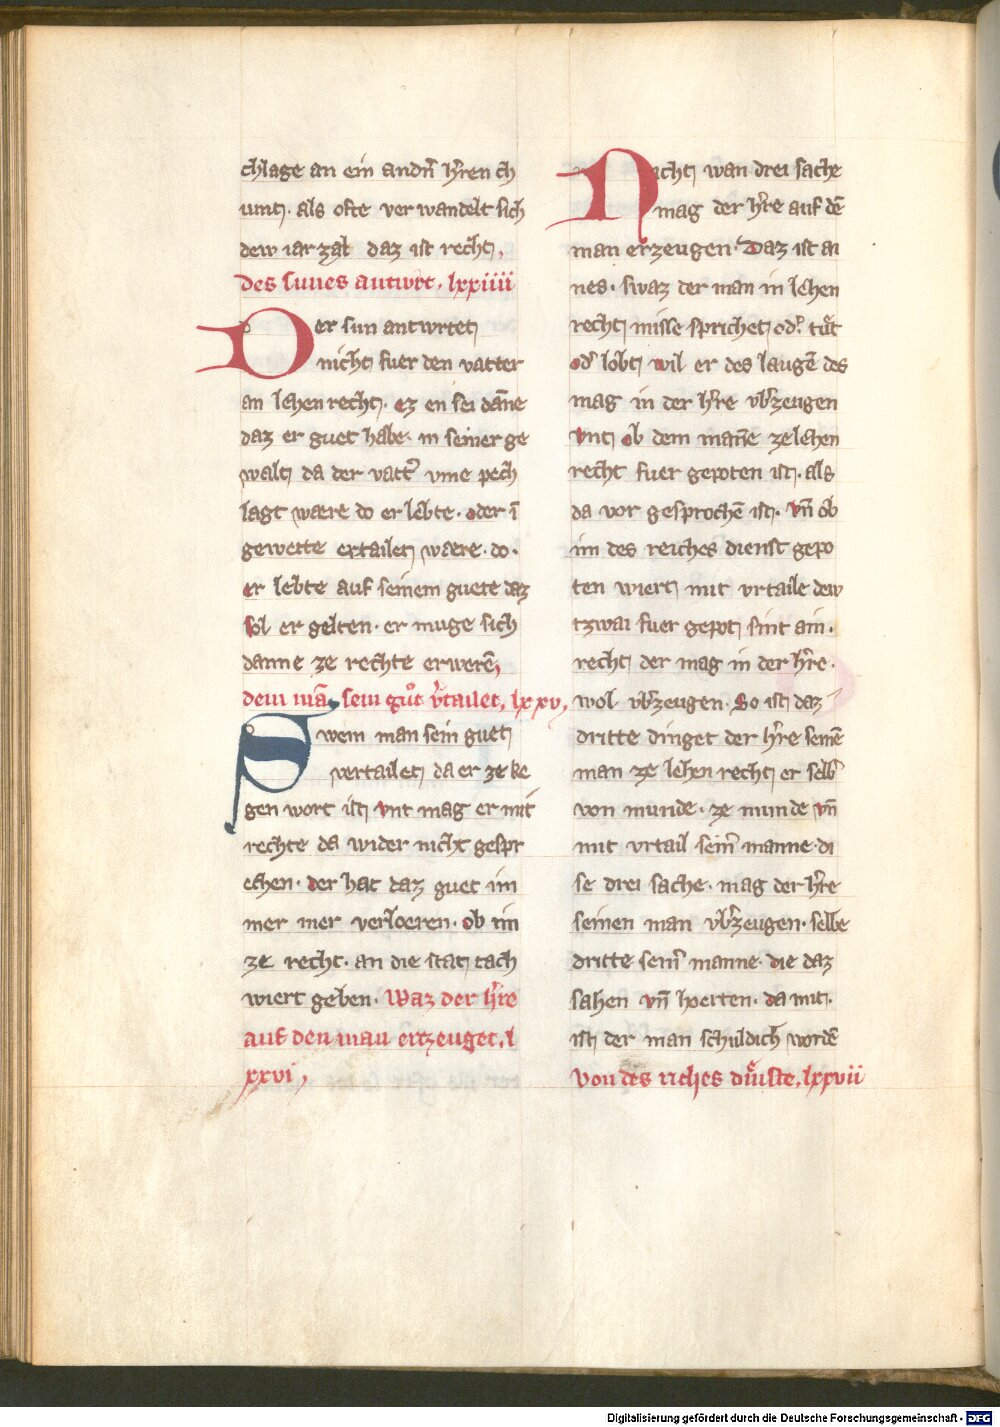 chlage an ein andn̄ hr̄en ch
umt. als ofte verwandelt sich
dew iarzal daz ist recht.
des sunes antwrt. lxxiiii
Der sun antwrtet
nicht fuer den vatter
an lehenrecht. ez en sei dāne
daz er guet habe in seiner ge
walt da der vatt̄ vme pech
lagt waere do er lebte. oder ī
gewette ertailet waere. do.
er lebte auf seinem guete daz
sol er gelten. er muge sich
danne ze rechte erwerē,
dem mā sein gůt v̄tailet, lxxv,
Swem man sein guet
vertailet da er ze ke
gen wort ist vnt mag er mit
rechte da wider nicht gespr
echen. der hat daz guet im
mer mer verloeren. ob im
ze recht. an die stat tach
wiert geben. Waz der hr̄e
auf den man ertzeuget, l
xxvi,
Nicht wan drei sache
mag der hr̄e auf dē
man erzeugen. Daz ist ai
nes. swaz der man in lehen
recht misse sprichet od̄. tůt
od̄ lobt wil er des laugē des
mag in der hr̄e vb̄zeugen
vnt ob dem man̄e ze lehen
recht fuer gepoten ist. als
da vor gesprochē ist. vn̄ ob
im des reiches dienst gepo
ten wiert mit vrtaile dew
tzwai fuer gepot sint ain.
recht der mag in der hr̄e.
wol vb̄zeugen. So ist daz
dritte dinget der hr̄e seinē
man ze lehen recht er selb̄
von munde. ze munde vn̄
mit vrtail sein̄ manne. di
se drei sache. mag der hr̄e
seinen man vb̄zeugen. selbe
dritte sein̄ manne. die daz
sahen vn̄ hoerten. da mit.
ist der man schuldich wordē
Von des riches dinste, lxxvii
Digitalisierung gefördert durch die Deutsche Forschungsgemeinschaft - DFG